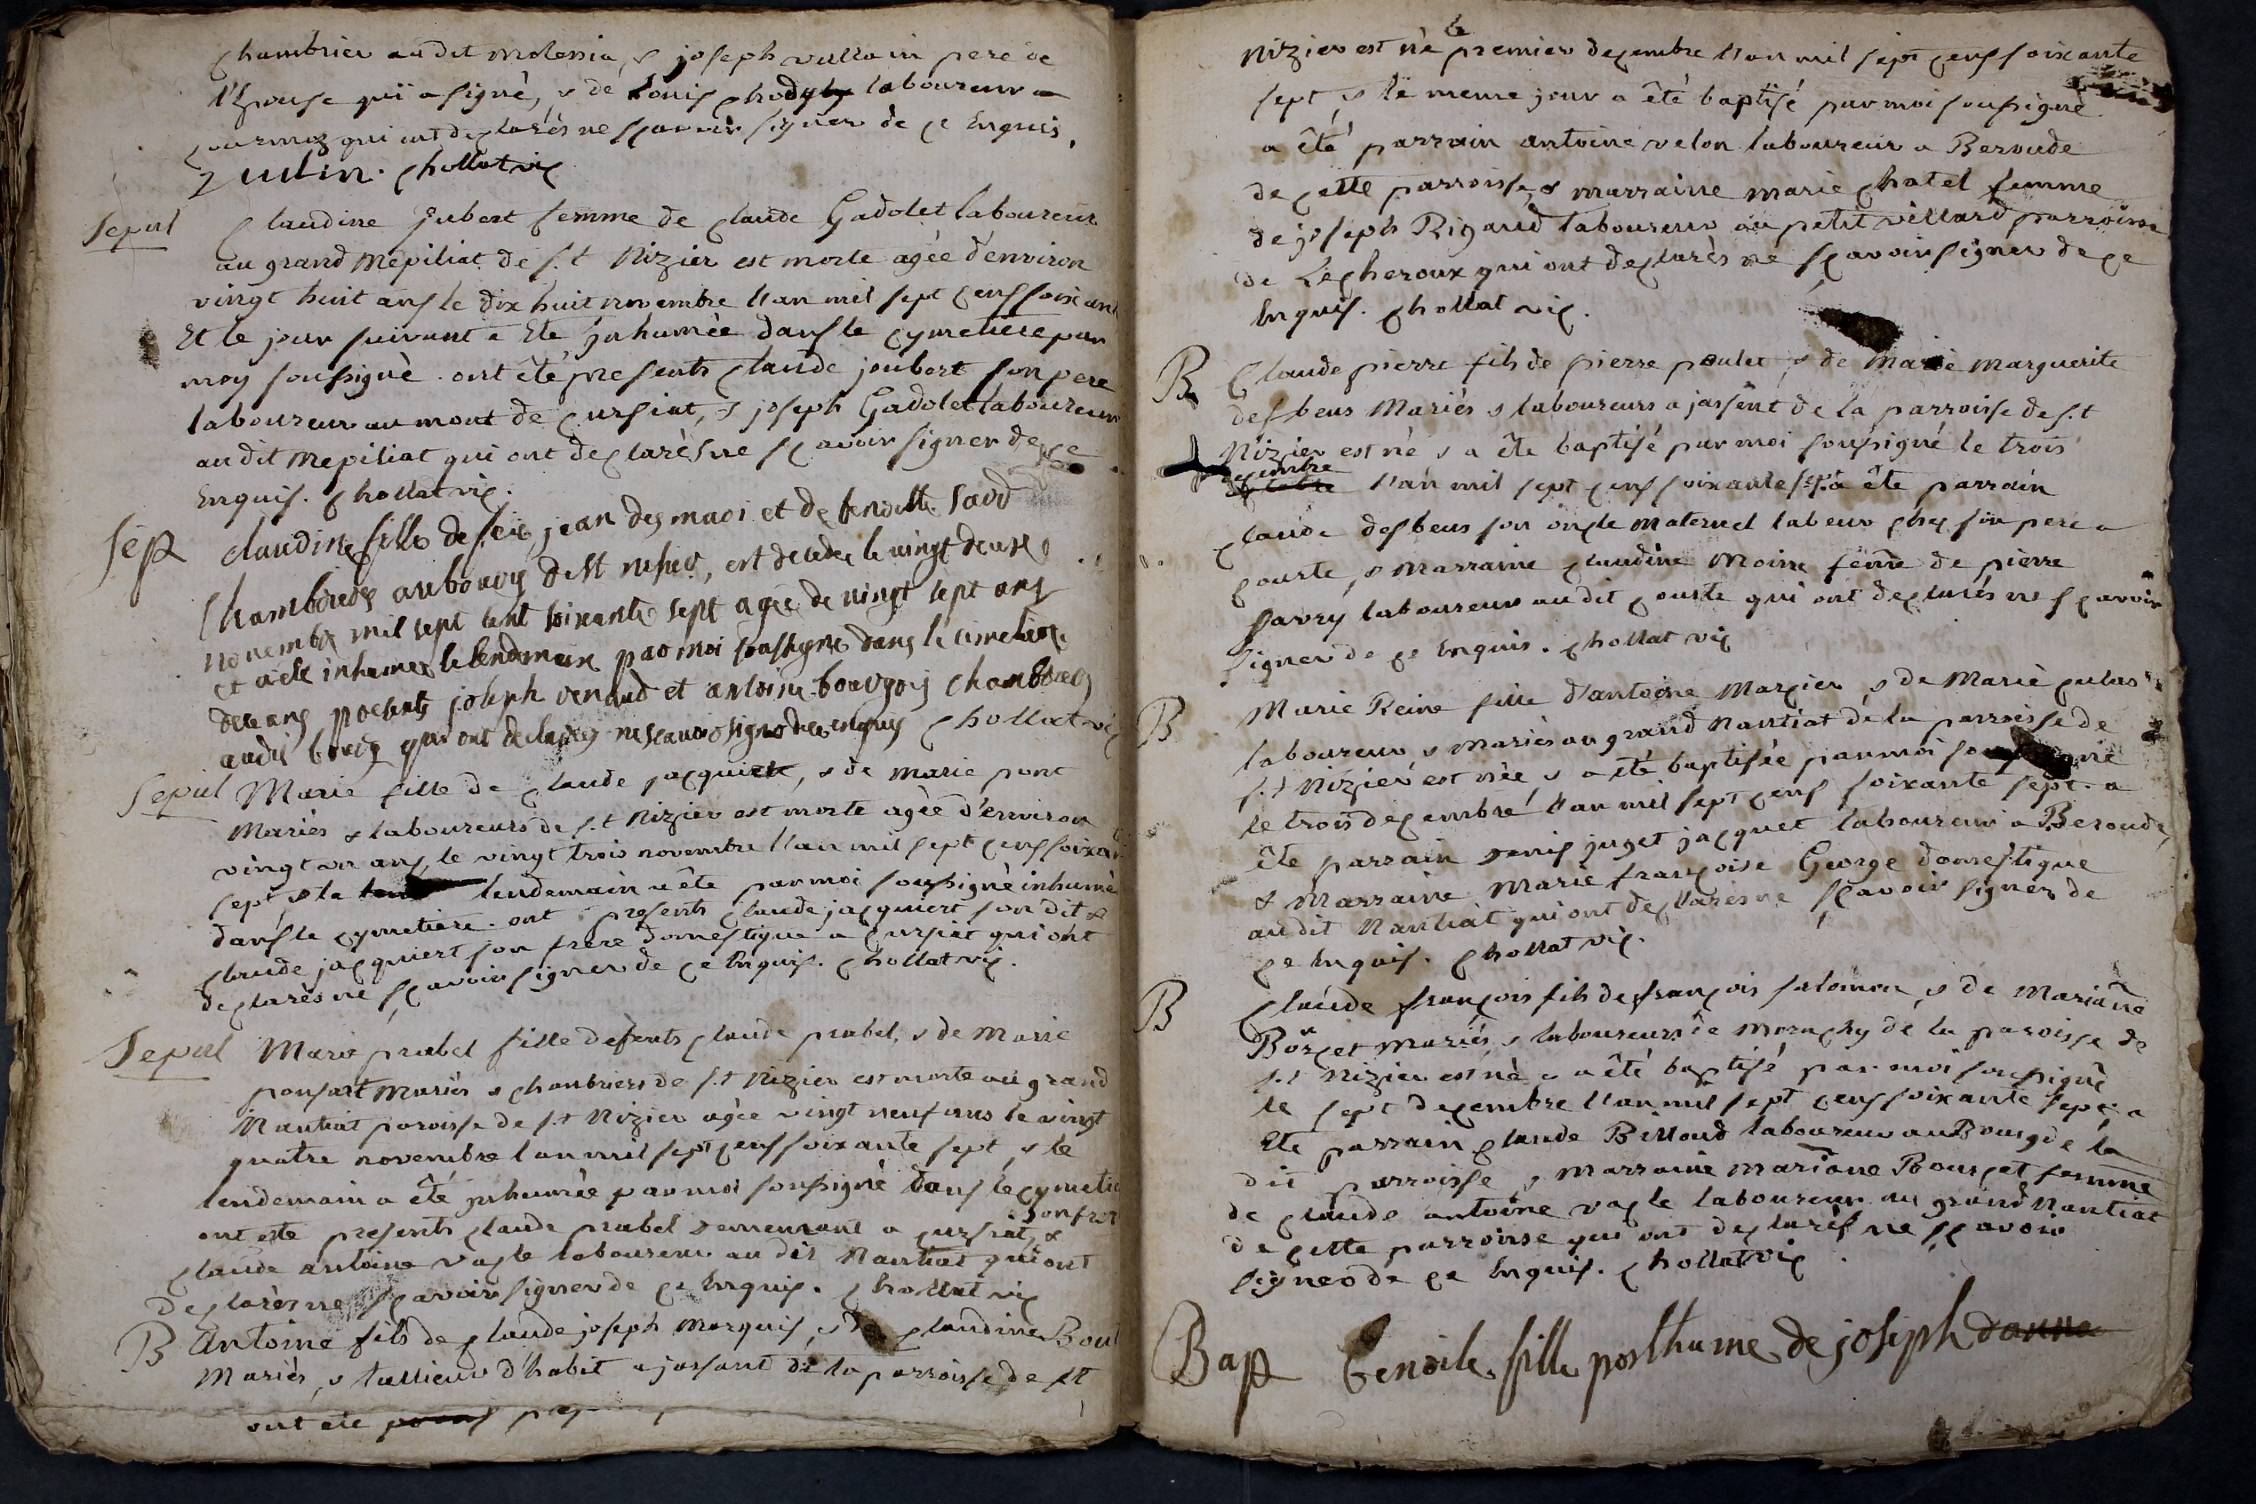 chambrier audit molessia, & joseph vullin pere de
l'Epouse qui a signé, & de Louis laboureur a
qui ont declarés ne sçavoir signer de ce Enquis.
vullin. chollat vic
Sepul
Claudine Jubert femme de claude Gadolet laboureur
au grand Mepiliat de s.t Nizier est morte agée d'environ
vingt huit ans le dix huit novembre l'an mil sept cens soixan
Et le jour suivant a Ete Inhumée dans le cymetiere par
moy soussigné. ont été presents claude joubert son pere
laboureur au mont de cursiat, & joseph Gadolet laboureur
au dit Mepiliat qui ont declarés ne sçavoir signer de ce
Enquis. chollat vic.
Sep
claudine fille de feu jean desmari et de benoitte
Chambriers au bourg de St nisier, est decedee le vingt deuxe
novembre mil sept cent soixante sept agée de vingt sept ans
et a eté inhumee le lendemain par moi soussigne dans le cimetiere
presents joseph renaud et antoine bourgois chambriers
audit bourg qui ont declarés ne scavoir signer de ce enquis chollat vic
Sepul
Marie fille de claude jacquiert, & de marie pont
Mariés & laboureurs de s.t Nizier est morte agée d'environ
vingt un ans, le vingt trois novembre l'an mil sept cens soixan
sept, & le lendemain a été par moi soussigné inhumé
dans le cymetiere. ont presents claude jacquiert son dit &
claude jacquiert son frere domestique a cursiat qui ont
declarés ne sçavoir signer de ce Enquis. chollat vic.
Sepul
Marie prabel fille defeuts claude prabel, & de Marie
ponsart Mariés & chanbriers de s.t Nizier est morte au grand
Nantiat paroisse de s.t Nizier agée vingt neuf ans le vingt
quatre novembre l'an mil sept cens soixante sept, & le
lendemain a été inhumée par moi soussigné dans le cymetie
son frer
ont este presents claude prabel demeurant a cursiat, &
claude antoine vacle laboureur au dit Nantiat qui ont
declarés ne sçavoir signer de ce Enquis. chollat vic
B
Antoine fils de claude joseph Marquis, & de claudine Boul
Mariés, & tallieur d'habit a jassant de la parroisse de st
ont ete
Nizier est né le premier decembre l'an mil sept cens soixante
sept & le meme jour a êté baptisé par moi soussigné
a êté parrain antoine velon laboureur a Beroude
de cette parroisse, & marraine marie chatel femme
de joseph Rigaud laboureur au petit villard parroisse
de Lecheroux qui ont declarés ne sçavoir signer de ce
Enquis. chollat vic.
B
Claude pierre fils de pierre poulet, & de Marie Marguerite
desbeus Mariés & laboureurs a jassent de la parroisse de s.t
Nizier est né & a ête baptisé par moi soussigné le trois
decembre l'an mil sept cens soixante sept. a ête parrain
claude desbeus son oncle maternel labeur chez son pere a
couste, & marraine claudine Moine femme de pierre
pavry laboureur au dit couste qui ont declarés ne sçavoir
signer de ce Enquis. chollat vic
B
Marie Reine fille d'antoine Marcier, & de Marie
laboureurs & mariés au grand Nantiat de la parroisse de
s.t Nizier est née, & a été baptisée par moi soussigné
le trois decembre l'an mil sept cens soixante sept. a
ête parrain denis juget jacquet laboureur a Beroude,
& Marraine Marie françoise George domestique
au dit Nantiat qui ont declarés ne sçavoir signer de
ce Enquis. chollat vic.
B
Claude françois fils de françois salomon, & de Mariane
Borcet Mariés, & laboureurs de de la paroisse de
s.t Nizier est né & a êté baptisé par moi soussigné
le sept decembre l'an mil sept cens soixante sept. a
Ete parrain claude Billoud laboureur au Bourg de la
dit parroisse, & Marraine Mariane Bourcet femme
de claude antoine vacle laboureur au grand Nantiat
de cette parroisse qui ont declarés ne sçavoir
signer de ce Enquis. chollat vic
Bap
benoite fille posthume de joseph danne